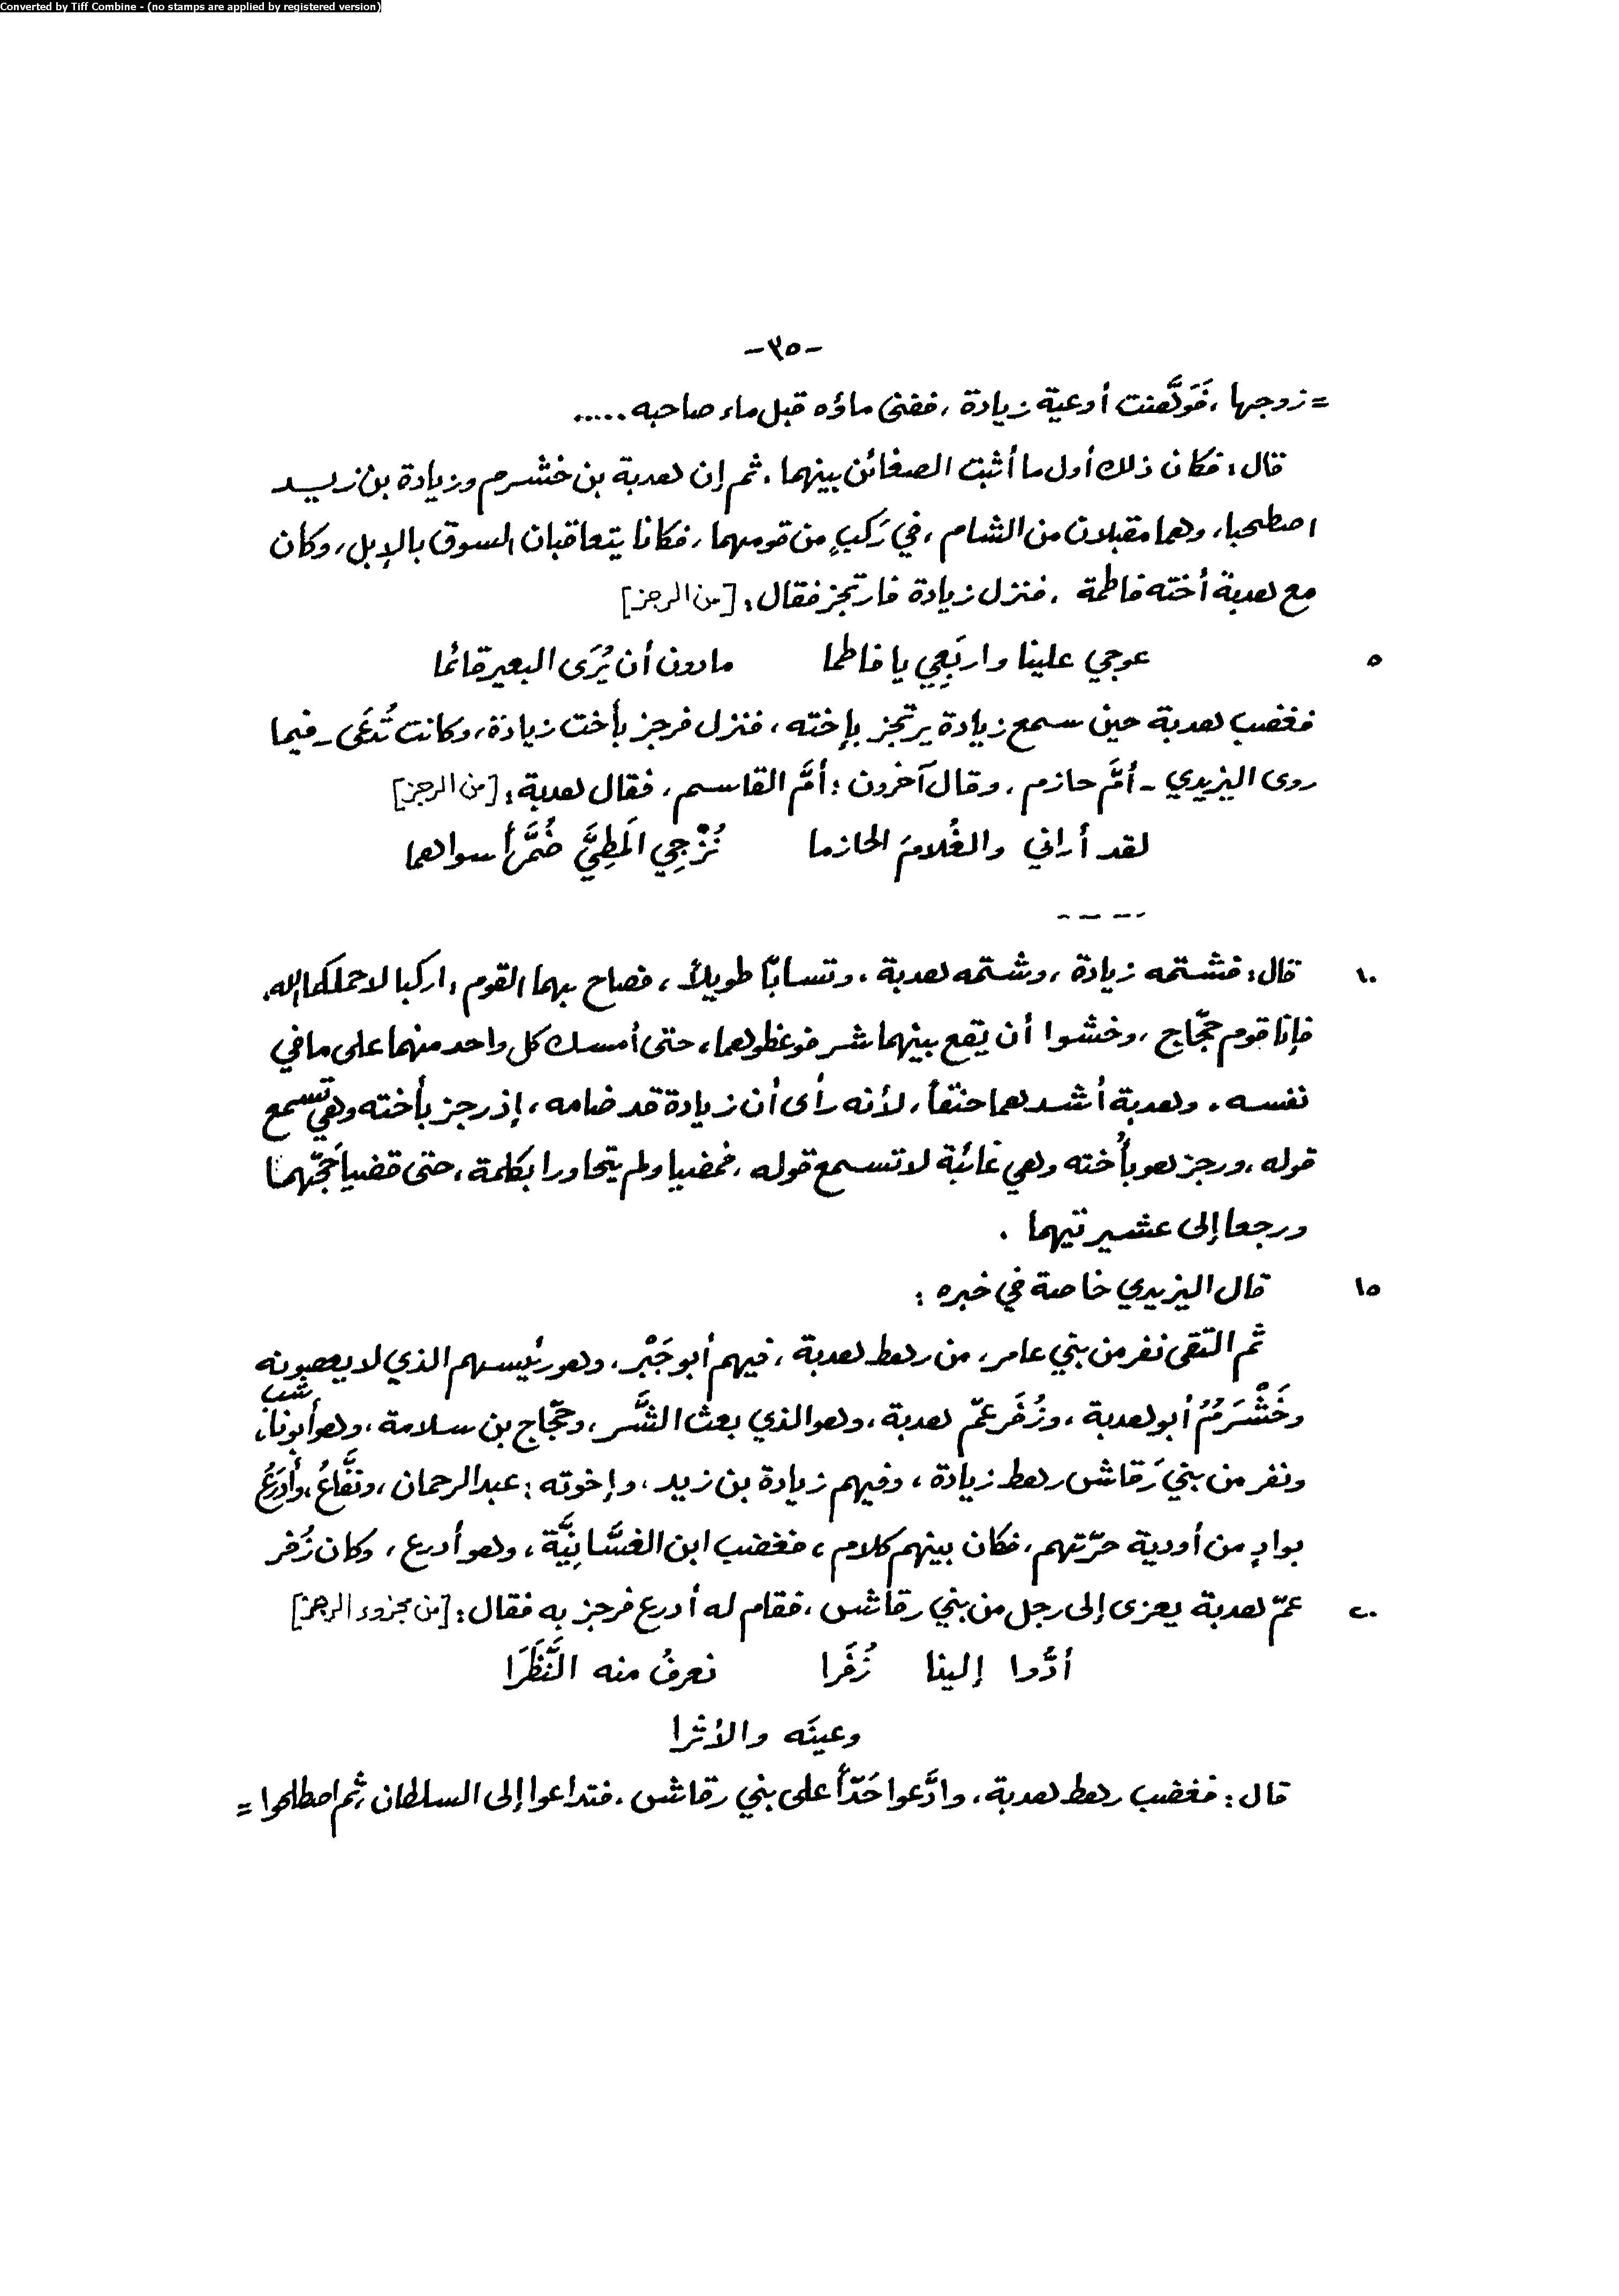 Converted by Tiff Combine - (no stamps are applied by registered version)
-٣٥-
= زوجها ، فَوَلَّهنت أوعية زيادة ، ففنى ماؤه قبل ماء صاحبه .....
قال : فكان ذلك أول ما أثبت الضغائن بينهما . ثم إن هدبة بن خشرم وزيادة بن زيد
اصطحبا ، وهما مقبلان من الشام ، في رَكبٍ من قومهما ، فكانا يتعاقبان السوق بالإبل ، وكان
مع هدبة أخته فاطمة ، فنزل زيادة فارتجز فقال : [من الرجز]
٥ عوجي علينا واربَعِي يا فاطما مادون أن يُرَى البعير قائما
فغضب هدبة حين سمع زيادة يرتجز بإخته ، فنزل فرجز بأخت زيادة ، وكانت تُدعَى - فيما
روى اليزيدي - أمَّ حازم ، وقال آخرون : أمَّ القاسم ، فقال هدبة : [من الرجز]
لقد أراني والغُلامَ الحازما نُزْجِي المَطِيَّ ضُمَّراً سواهما
- - - -
١٠ قال : فشتمه زيادة ، وشتمه هدبة . وتسابّا طويلاً ، فصاح بهما القوم : اركبا لا حملكما الله .
فإنا قوم حجّاج ، وخشوا أن يقع بينهما شر فوعظوهما ، حتى أمسك كل واحد منهما على ما في
نفسه . وهدبة أشدهما حنقاً ، لأنه رأى أن زيادة قد ضامه ، إذ رجز بأخته وهي تسمع
قوله ، ورجز هو بأُخته وهي غائبة لا تسمع قوله ، فمضيا ولم يتحاورا بكلمة ، حتى قضيا حَجّهما
ورجعا إلى عشيرتيهما .
١٥ قال اليزيدي خاصة في خبره :
ثم التقى نفر من بني عامر ، من رهط هدبة ، فيهم أبو جَبْر ، وهو رئيسهم الذي لا يعصونه
وخَشْرَمُ أبو هدبة ، وزُفَر عمّ هدبة ، وهو الذي بعث الشَّر ، وحجّاج بن سلامة ، وهو أبو ناشب ،
ونفر من بني رَقاش رهط زيادة ، وفيهم زيادة بن زيد ، وإخوته : عبد الرحمان ، ونفَّاعُ ، وأدرَعُ
بوادٍ من أودية حرّتهم ، فكان بينهم كلام ، فغضب ابن الغسَّانِيَّة ، وهو أدرع ، وكان زُفر
٢٠ عمّ هدبة يعزى إلى رجل من بني رقاش ، فقام له أدرع فرجز به فقال : [من مجزوء الرجز]
أدُّوا إلينا زُفَرا نعرفُ منه النَّظَرَا
وعينَه والأثرا
قال : فغضب رهط هدبة ، وادَّعوا حَدّاً على بني رقاش . فتداعوا إلى السلطان ، ثم اصطلحوا =